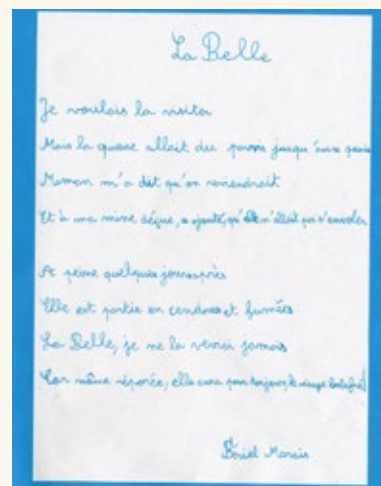 La Belle
Je voulais la visiter
Mais la queue allait du parvis jusqu'aux quais
Maman m'a dit qu'on reviendrait
Et à ma mine déçue, a ajouté, qu'Elle n'allait pas s'envoler
A peine quelques jours après
Elle est partie en cendres et fumées
La Belle, je ne la verrai jamais
Car même réparée, elle aura pour toujours, le visage balafré
Marais